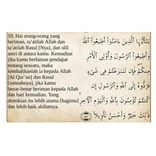 59. Hai orang-orang yang
beriman, ta'atilah Allah dan
ta'atilah Rasul (Nya), dan ulil
amri di antara kamu. Kemudian
jika kamu berlainan pendapat
tentang sesuatu, maka
kembalikanlah ia kepada Allah
(Al Qur'an) dan Rasul
(sunnahnya), jika kamu
benar-benar beriman kepada Allah
dan hari kemudian. Yang
demikian itu lebih utama (bagimu)
dan lebih baik akibatnya.
يَٰٓأَيُّهَا ٱلَّذِينَ ءَامَنُوٓا۟ أَطِيعُوا۟ ٱللَّهَ
وَأَطِيعُوا۟ ٱلرَّسُولَ وَأُو۟لِى ٱلْأَمْرِ مِنكُمْ
فَإِن تَنَٰزَعْتُمْ فِى شَىْءٍ فَرُدُّوهُ إِلَى ٱللَّهِ
وَٱلرَّسُولِ إِن كُنتُمْ تُؤْمِنُونَ بِٱللَّهِ وَٱلْيَوْمِ ٱلْءَاخِرِ
ذَٰلِكَ خَيْرٌ وَأَحْسَنُ تَأْوِيلًا